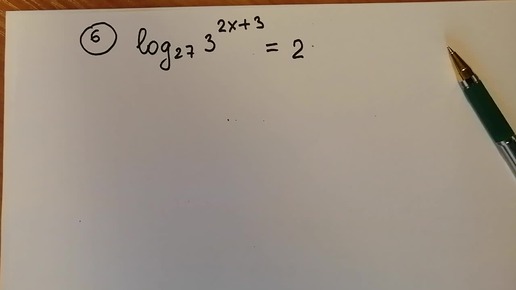 6 log₂₇ 3^(2x+3) = 2